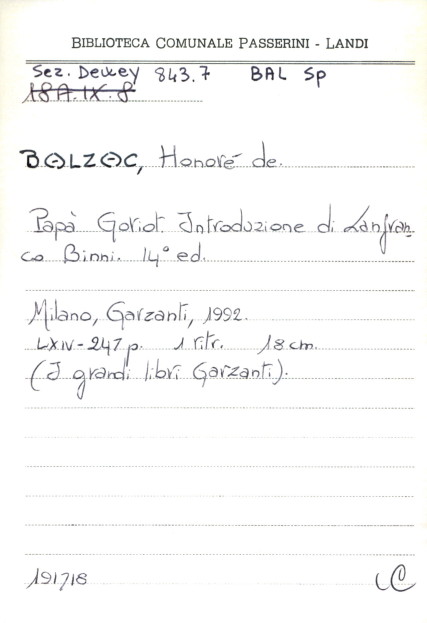 BIBLIOTECA COMUNALE PASSERINI - LANDI
Sez. Dewey 843.7 BAL Sp
18A.IX.8
BALZAC, Honoré de.
Papà Goriot. Introduzione di Lanfran-
co Binni. 14° ed.
Milano, Garzanti, 1992.
LXIV-247 p. 1 ritr. 18 cm.
(I grandi libri Garzanti).
191718